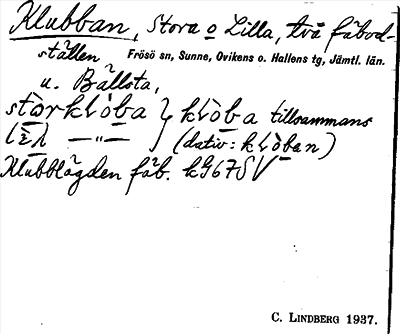 Klubban, Stora o Lilla, två fäbod-
ställen Frösö sn, Sunne, Ovikens o. Hallens tg, Jämtl. län.
u. Bällsta,
stòrklòba } klòba tillsammans
lìλ —"— } (dativ: klòban)
Klubblägden fäb. kG67SV
C. LINDBERG 1937.